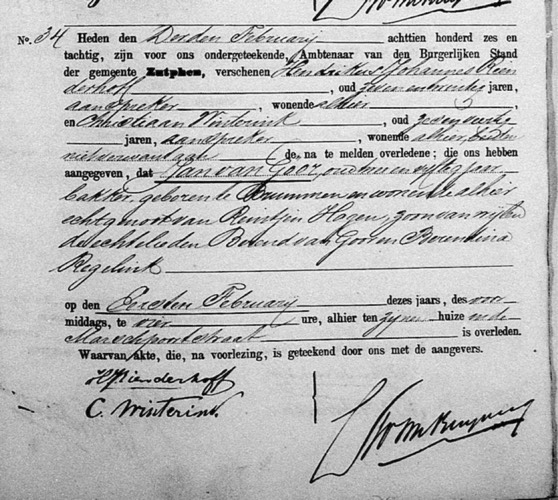 No. 34 Heden den Derden February achttien honderd zes en
tachtig, zijn voor ons ondergeteekende, Ambtenaar van den Burgerlijken Stand
der gemeente Zutphen, verschenen Hendrikus Johannes Rien
derhoff, oud zeven en veertig jaren,
aanspreker, wonende alhier
en Christiaan Winterink, oud
jaren, aanspreker, wonende alhier, beiden
niet verwant aan de na te melden overledene; die ons hebben
aangegeven, dat Jan van Goor, oud en vijftig jaar
bakker, geboren te Brummen en wonende alhier
echtgenoot van Hagen, zoon van wijlen
de echtelieden Berend van Goor en Berendina
Regelink
op den Eersten February dezes jaars, des voor-
middags, te vier ure, alhier ten zijnen huize in de
Marschpoortstraat is overleden.
Waarvan akte, die, na voorlezing, is geteekend door ons met de aangevers.
HJRienderhoff
C. Winterink.